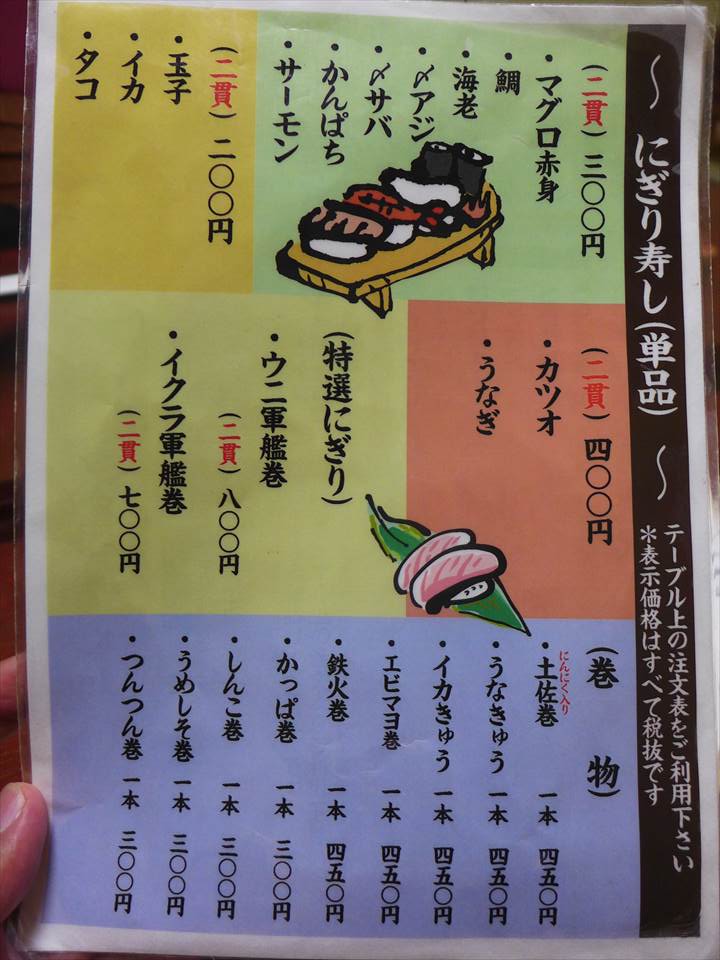 〜 にぎり寿し(単品) 〜
テーブル上の注文表をご利用下さい
＊表示価格はすべて税抜です
(二貫) 三〇〇円
・マグロ赤身
・鯛
・海老
・〆アジ
・〆サバ
・かんぱち
・サーモン
(二貫) 二〇〇円
・玉子
・イカ
・タコ
(二貫) 四〇〇円
・カツオ
・うなぎ
(特選にぎり)
・ウニ軍艦巻
(二貫) 八〇〇円
・イクラ軍艦巻
(二貫) 七〇〇円
(巻 物)
にんにく入り
・土佐巻 一本 四五〇円
・うなきゅう 一本 四五〇円
・イカきゅう 一本 四五〇円
・エビマヨ巻 一本 四五〇円
・鉄火巻 一本 四五〇円
・かっぱ巻 一本 三〇〇円
・しんこ巻 一本 三〇〇円
・うめしそ巻 一本 三〇〇円
・つんつん巻 一本 三〇〇円